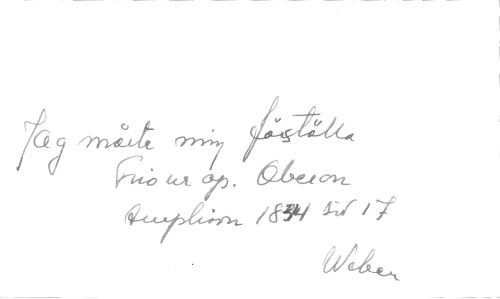 Jag måste mig förställa
Trio ur op. Oberon
Amphion 1834 sid 17
Weber